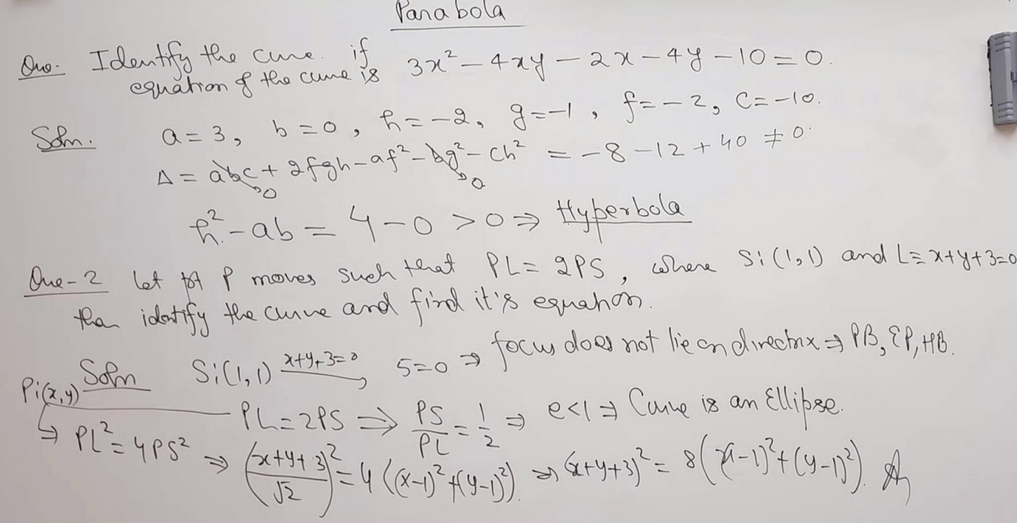 Parabola
Que. Identify the curve if equation of the curve is 3x² - 4xy - 2x - 4y - 10 = 0.
Soln. a = 3, b = 0, h = -2, g = -1, f = -2, c = -10.
Δ = abc + 2fgh - af² - bg² - ch² = -8 - 12 + 40 ≠ 0.
0 0
h² - ab = 4 - 0 > 0 ⇒ Hyperbola
Que-2 Let pt P moves such that PL = 2PS, where S:(1,1) and L ≡ x+y+3=0
then idatify the curve and find it's equation.
Soln S:(1,1) x+y+3=0 → 5=0 ⇒ focus does not lie on directrix ⇒ PB, EP, HB.
P:(x,y) PL = 2PS ⇒ PS/PL = 1/2 ⇒ e<1 ⇒ Curve is an Ellipse.
↳ PL² = 4PS² ⇒ ((x+y+3)/√2)² = 4((x-1)²+(y-1)²) ⇒ (x+y+3)² = 8((x-1)²+(y-1)²).